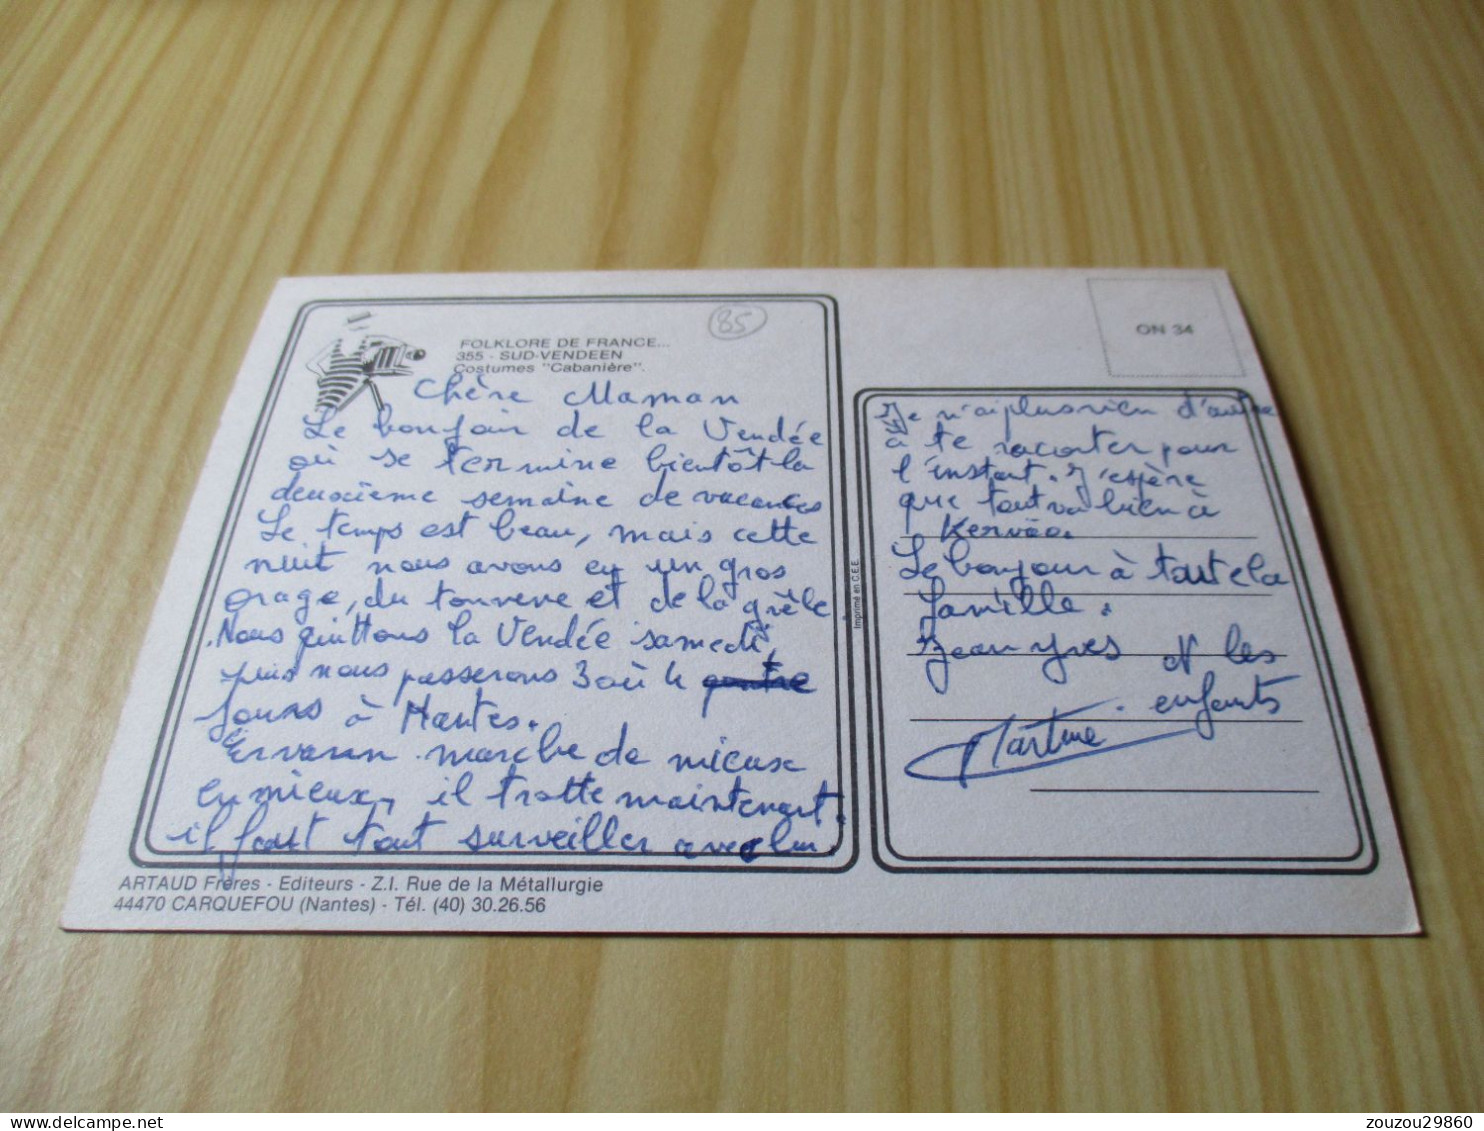 85
FOLKLORE DE FRANCE...
355 - SUD-VENDEEN
Costumes "Cabanière".
ON 34
Chère Maman
Le bonjour de la Vendée
où se termine bientôt la
deuxième semaine de vacances
Le temps est beau, mais cette
nuit nous avons eu un gros
orage, du tonnerre et de la grêle
. Nous quittons la Vendée samedi,
puis nous passerons 3 où 4
jours à Nantes.
Erwann marche de mieux
en mieux, il trotte maintenant.
il faut tout surveiller avec lui.
Je n'ai plus rien d'autre
à te raconter pour
l'instant. J'espère
que tout va bien à
Kervéo.
Le bonjour à toute la
famille.
Jean Yves N les
enfants
Martine
Imprimé en C.E.E.
ARTAUD Frères - Editeurs - Z.I. Rue de la Métallurgie
44470 CARQUEFOU (Nantes) - Tél. (40) 30.26.56
zouzou29860